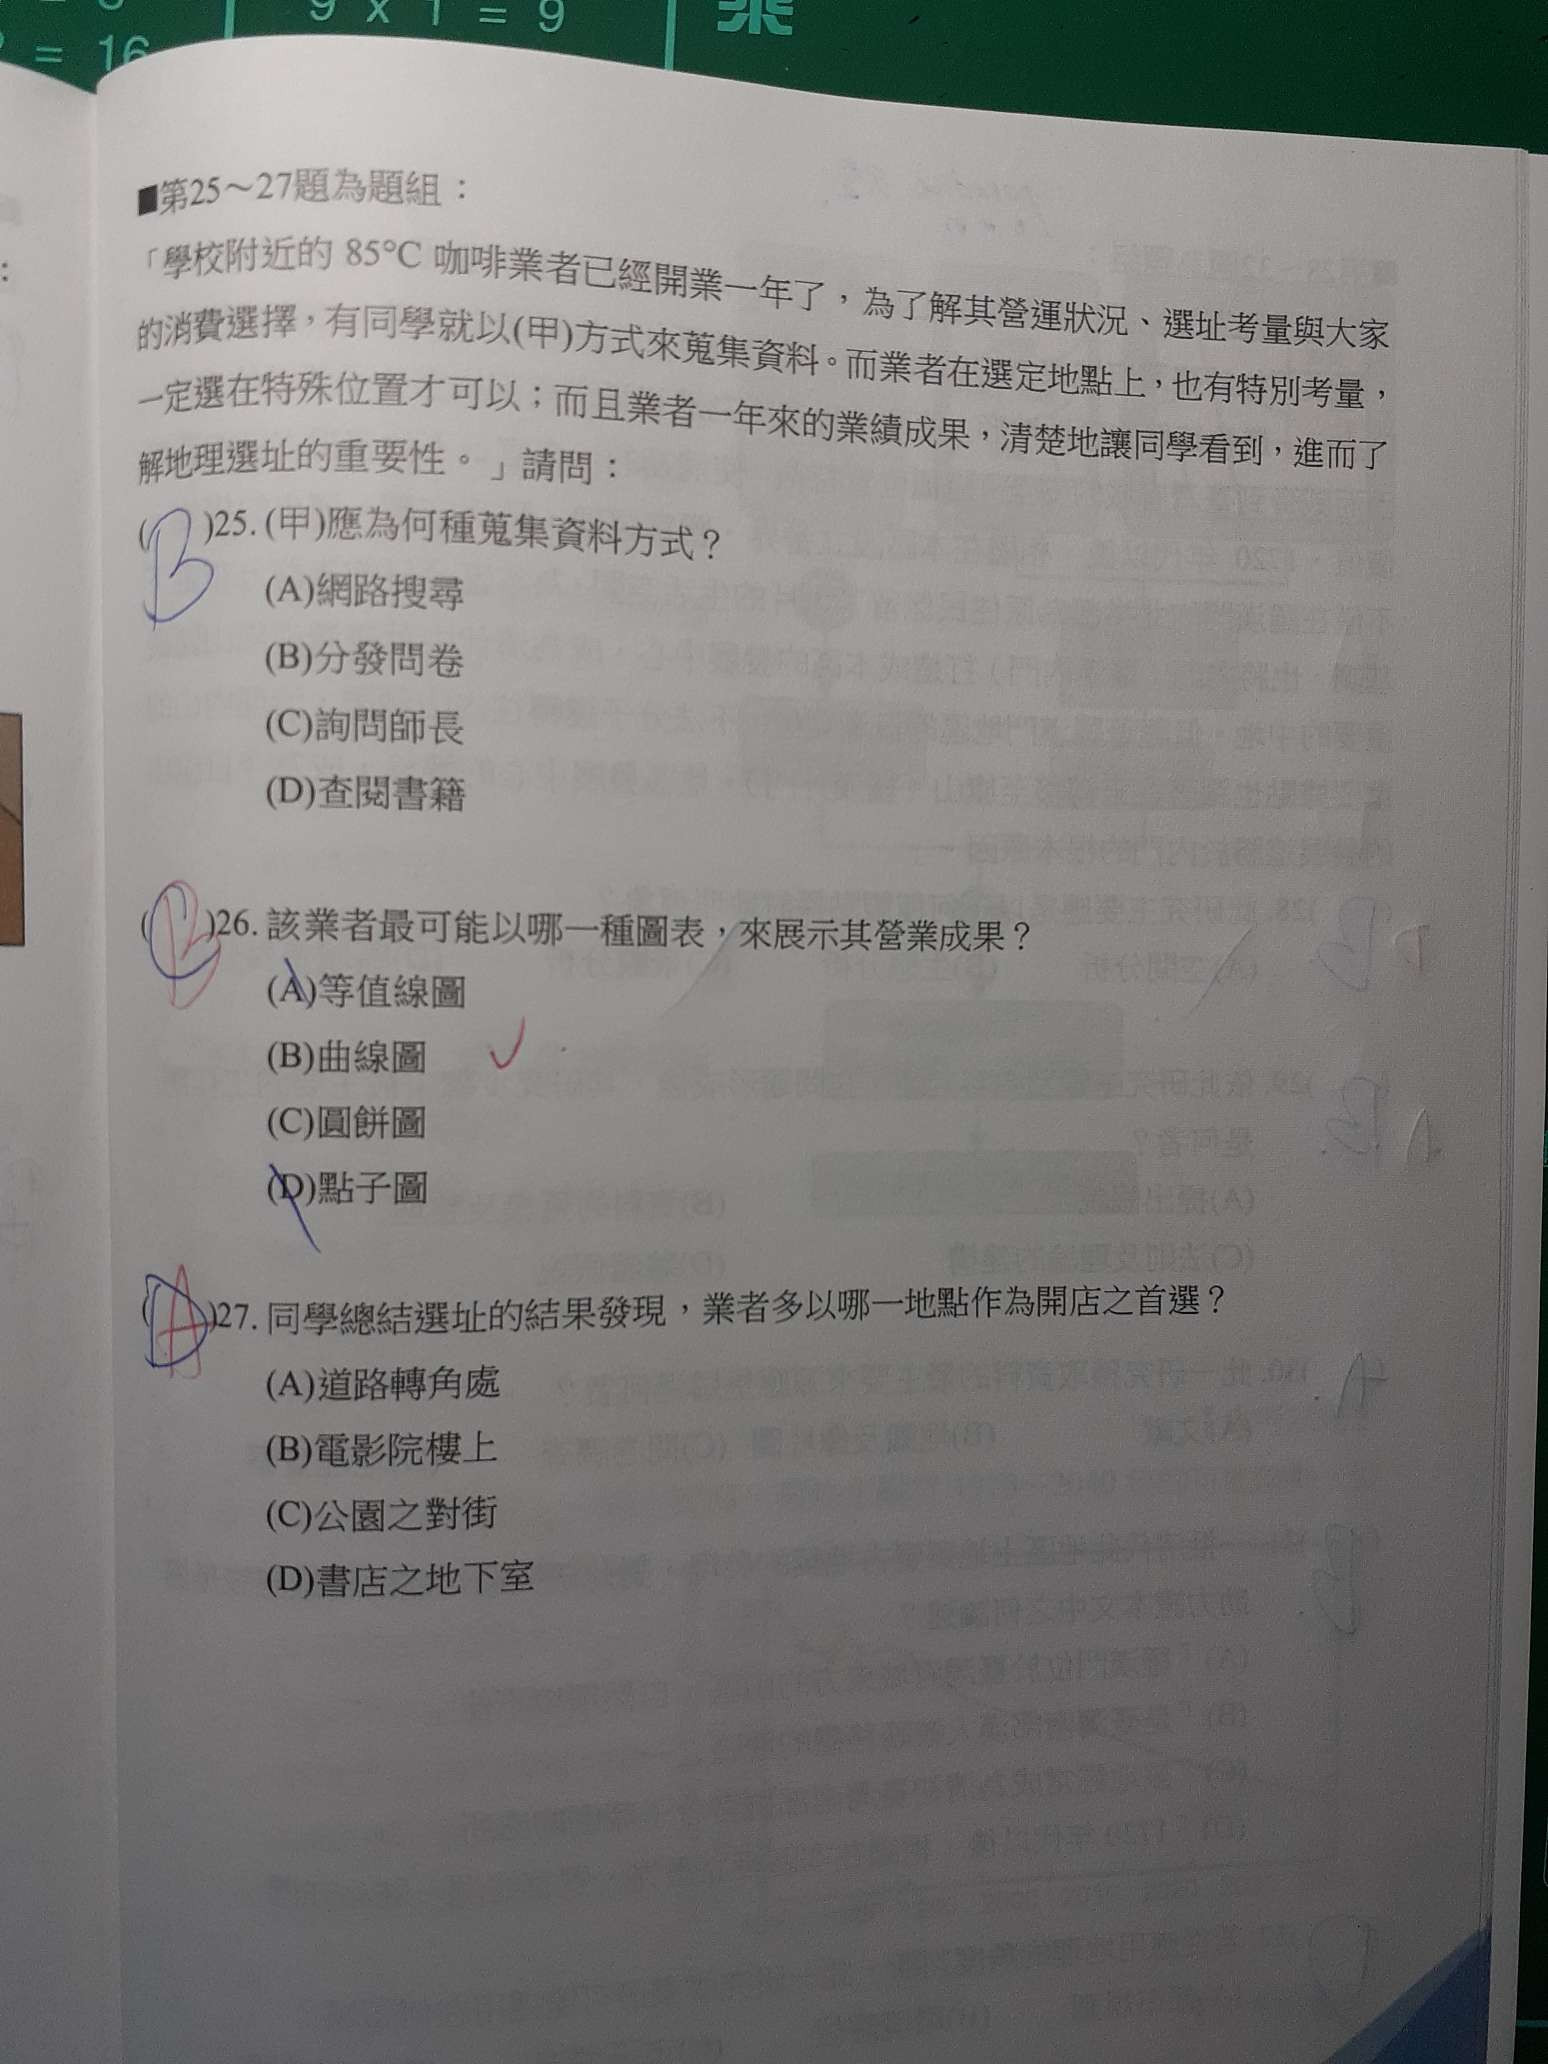 9 x 1 = 9
= 16
■第25～27題為題組：
「學校附近的 85°C 咖啡業者已經開業一年了，為了解其營運狀況、選址考量與大家
的消費選擇，有同學就以(甲)方式來蒐集資料。而業者在選定地點上，也有特別考量，
一定選在特殊位置才可以；而且業者一年來的業績成果，清楚地讓同學看到，進而了
解地理選址的重要性。」請問：
(B)25. (甲)應為何種蒐集資料方式？
(A)網路搜尋
(B)分發問卷
(C)詢問師長
(D)查閱書籍
(B)26. 該業者最可能以哪一種圖表，來展示其營業成果？
(A)等值線圖
(B)曲線圖
(C)圓餅圖
(D)點子圖
(A)27. 同學總結選址的結果發現，業者多以哪一地點作為開店之首選？
(A)道路轉角處
(B)電影院樓上
(C)公園之對街
(D)書店之地下室